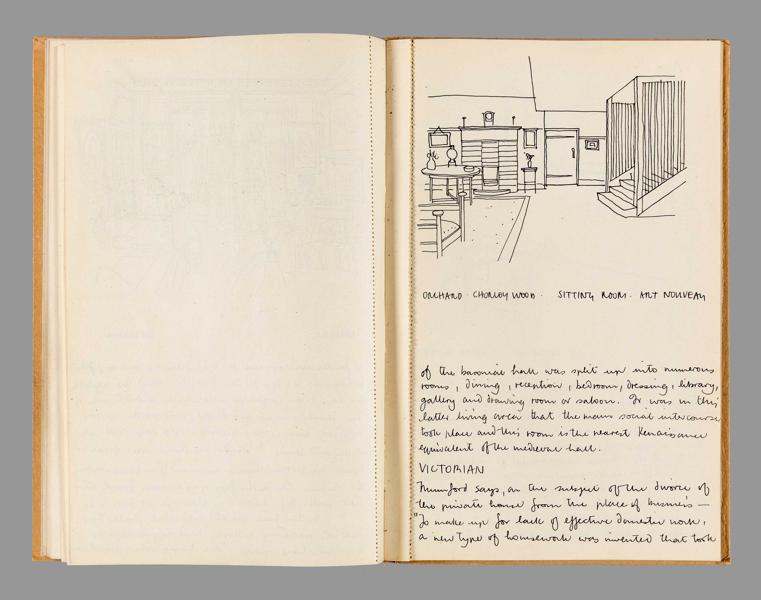 ORCHARD · CHORLEY WOOD · SITTING ROOM · ART NOUVEAU
of the baronial hall was split up into numerous
rooms, dining, reception, bedroom, dressing, library,
gallery and drawing room or saloon. It was in this
latter living area that the main social intercourse
took place and this room is the nearest Renaissance
equivalent of the medieval hall.
VICTORIAN
Mumford says, on the subject of the divorce of
the private house from the place of business —
"To make up for lack of effective domestic work,
a new type of housework was invented that took